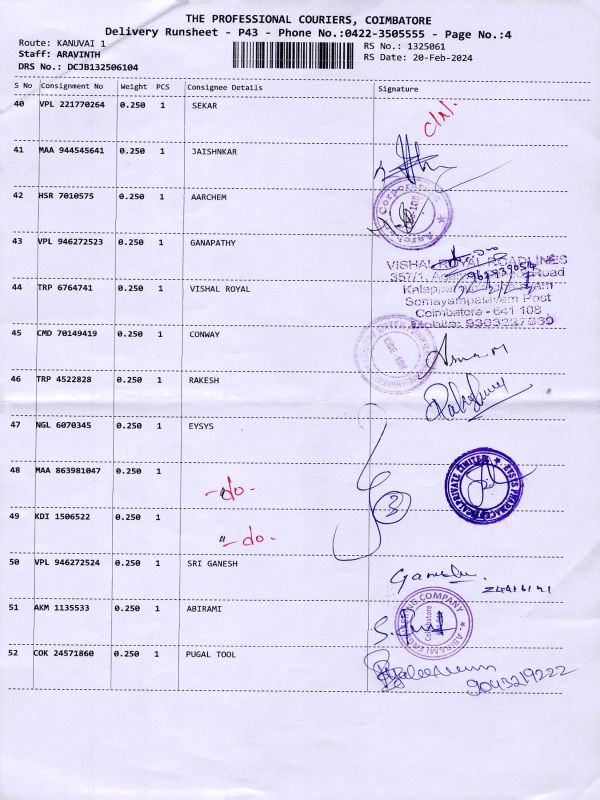 THE PROFESSIONAL COURIERS, COIMBATORE
Delivery Runsheet - P43 - Phone No.:0422-3505555 - Page No.:4
Route: KANUVAI 1
RS No.: 1325061
Staff: ARAVINTH
RS Date: 20-Feb-2024
DRS No.: DCJB132506104
S No Consignment No Weight PCS Consignee Details Signature
40 VPL 221770264 0.250 1 SEKAR
41 MAA 944545641 0.250 1 JAISHNKAR
42 HSR 7010575 0.250 1 AARCHEM
Corporation
43 VPL 946272523 0.250 1 GANAPATHY
VISHAL ROYAL ROADLINES
Road
44 TRP 6764741 0.250 1 VISHAL ROYAL
Somayampalayam Post
Coimbatore - 641 108
45 CMD 70149419 0.250 1 CONWAY
46 TRP 4522828 0.250 1 RAKESH
47 NGL 6070345 0.250 1 EYSYS
48 MAA 863981047 0.250 1
-do-
3
49 KDI 1506522 0.250 1
" -do-
50 VPL 946272524 0.250 1 SRI GANESH
Ganesh
51 AKM 1135533 0.250 1 ABIRAMI
Coimbatore
52 COK 24571860 0.250 1 PUGAL TOOL
9043219222